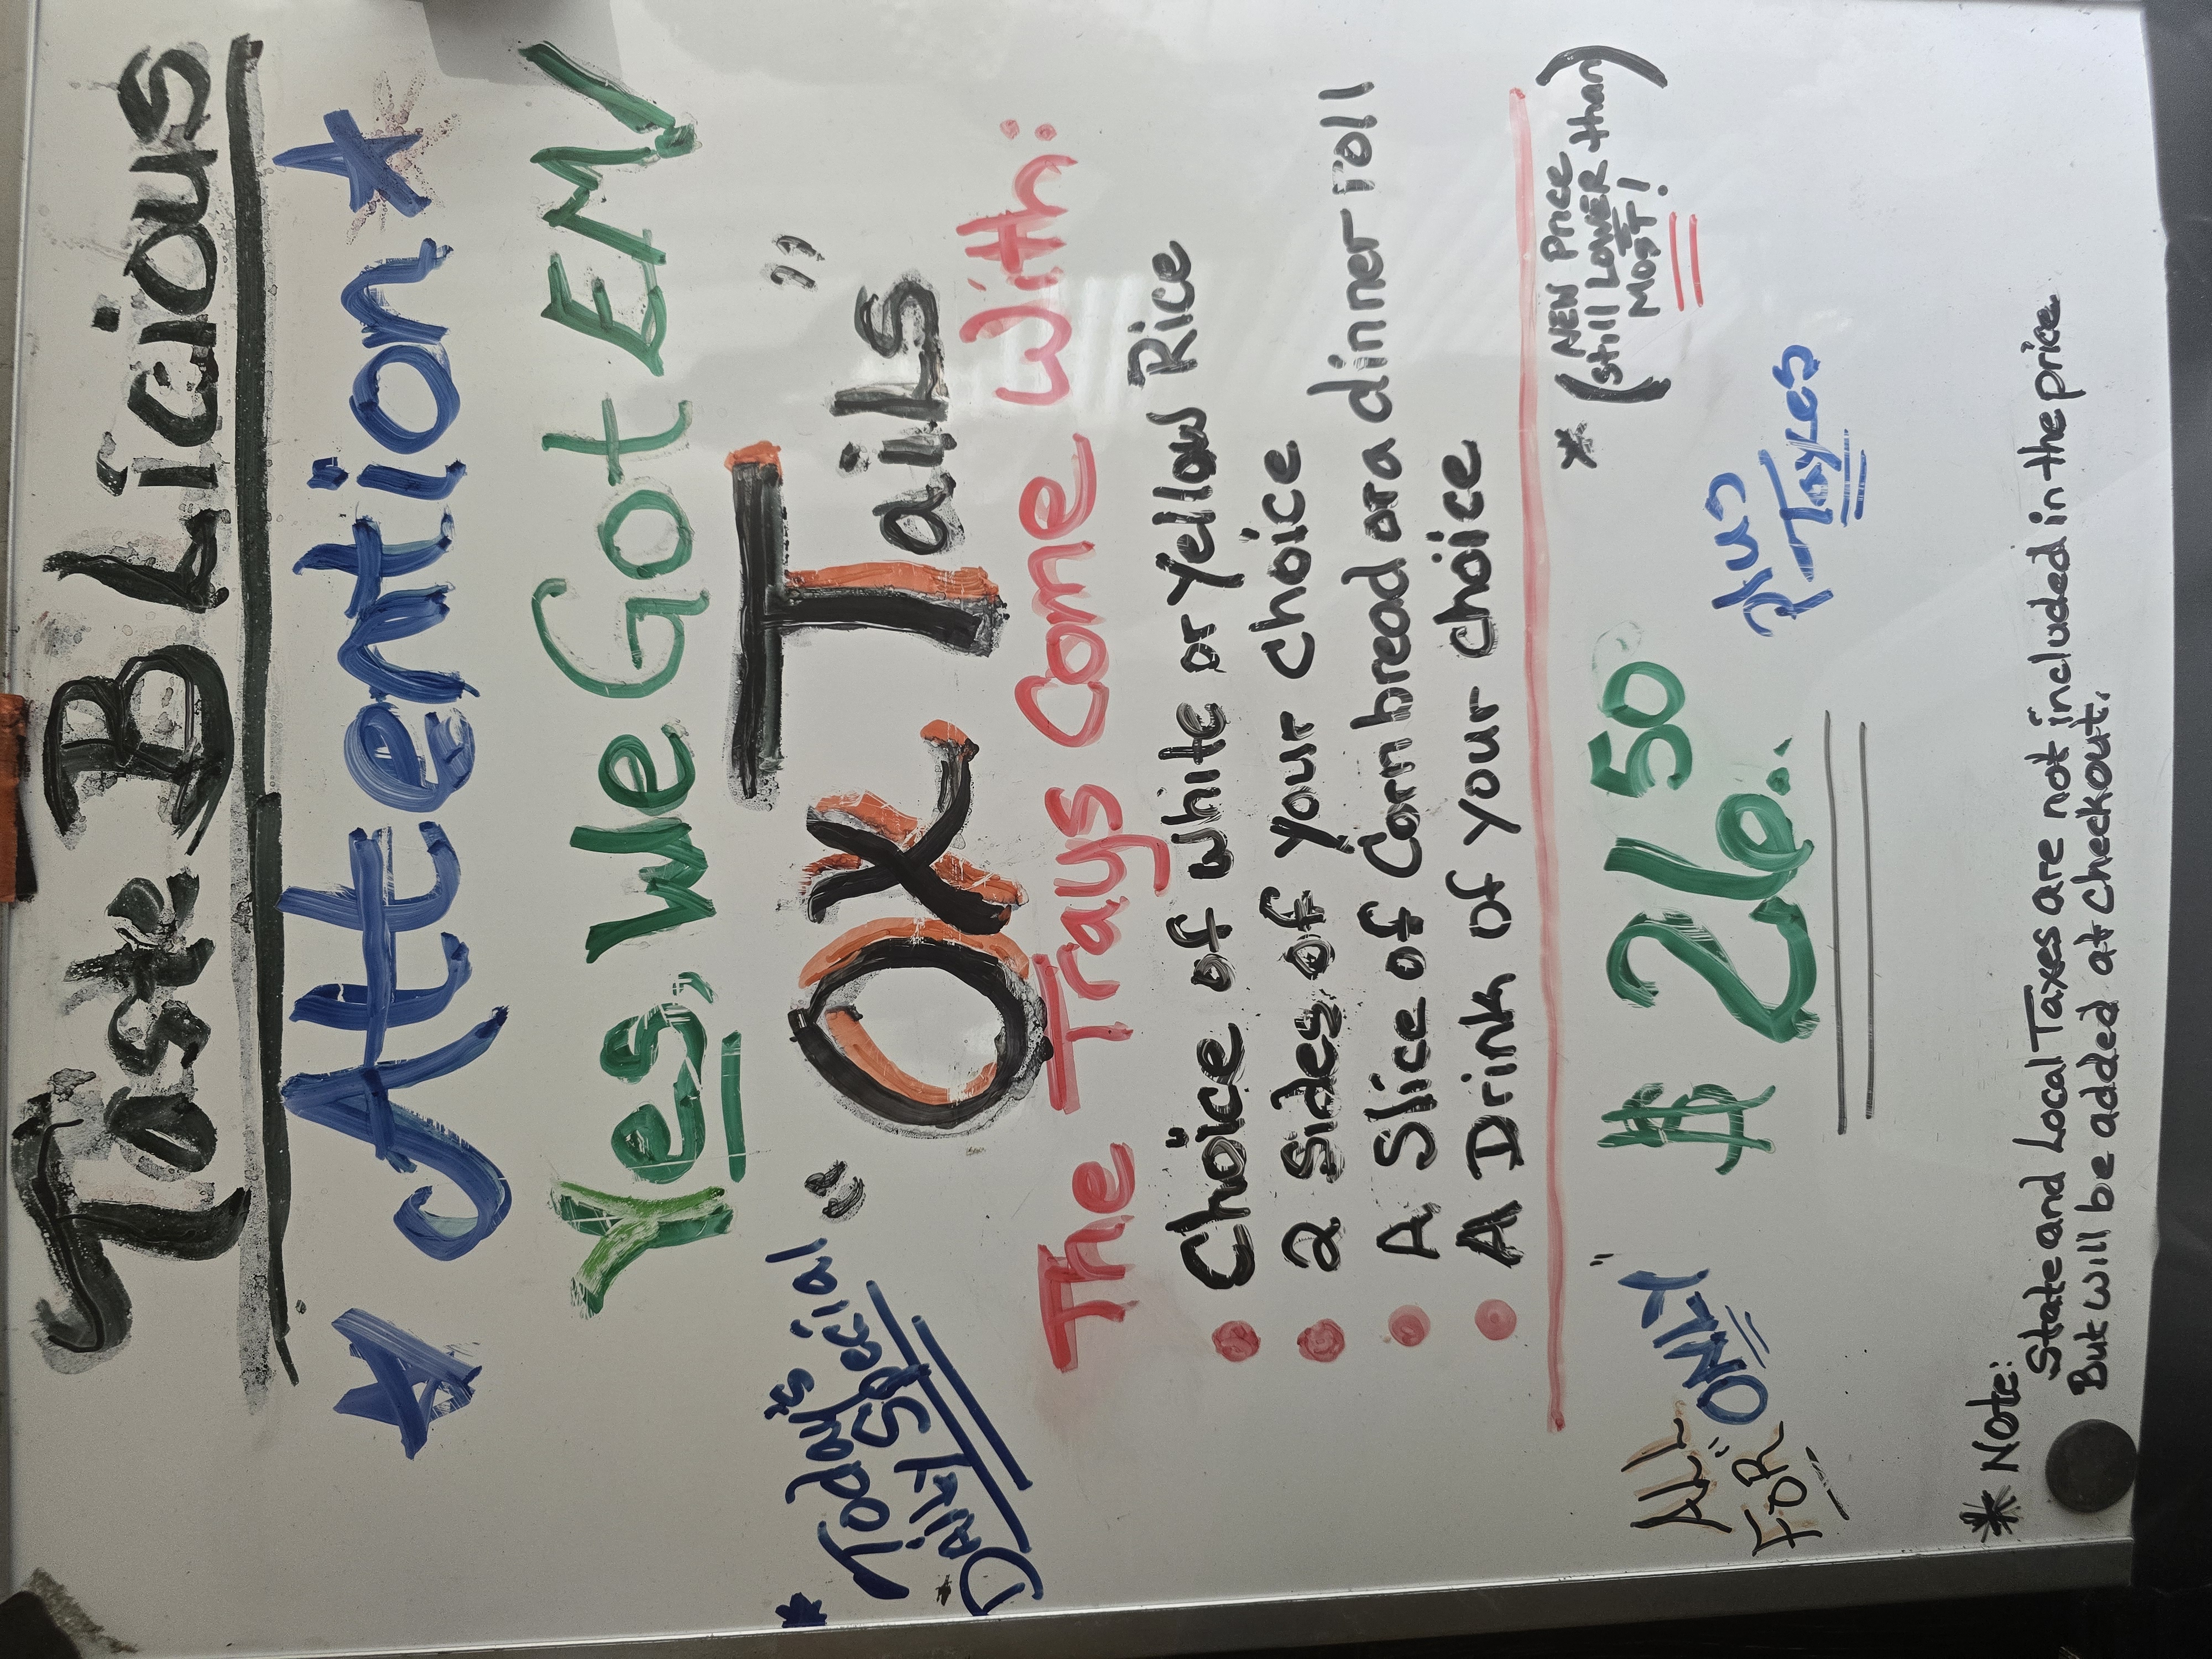 Taste B Licious
Attention
Yes, We Got EM
* Today's Special
Daily Special
" OX Tails "
The Trays Come With:
• Choice of white or Yellow Rice
• 2 Sides of your choice
• A Slice of Corn bread or a dinner roll
• A Drink of your choice
* NEW Price
(still LOWER than)
MOST!
ALL
FOR "ONLY"
$ 26.50
Plus
Taxes
* Note:
State and Local Taxes are not included in the price
But will be added at checkout.